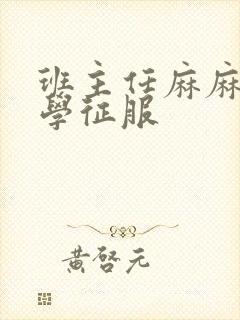 班主任麻麻
學征服
黃啓元